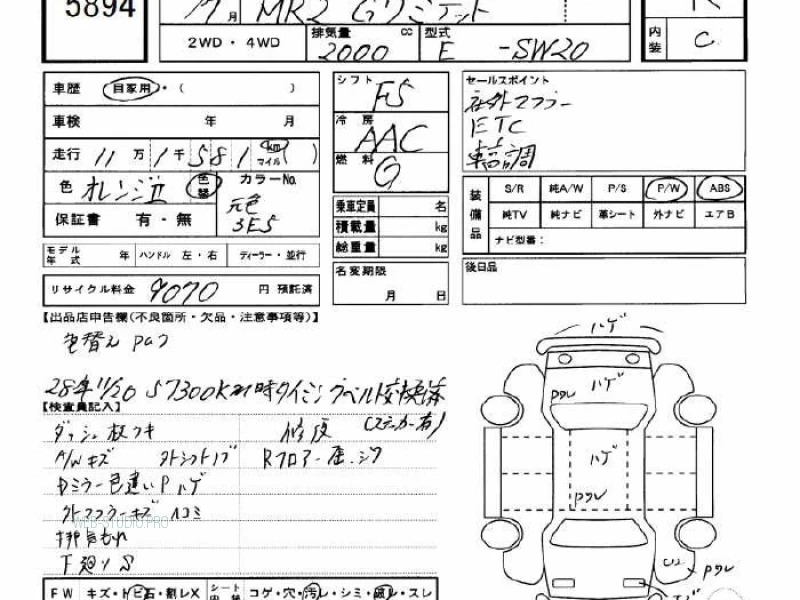 5894
7月 MR2 Gリミテッド
2WD・4WD 排気量 2000 cc 型式 E -SW20
内装 C
車歴 自家用・( )
シフト F5
セールスポイント
社外マフラー
ETC
車高調
車検 年 月
冷房 AAC
走行 11万1千581 km マイル( )
燃料 G
色 オレンジII 色替 カラーNo.
元色 3E5
保証書 有・無
乗車定員 名
積載量 kg
総重量 kg
装備品 S/R 純A/W P/S P/W ABS
純TV 純ナビ 革シート 外ナビ エアB
ナビ型番:
モデル年式 年 ハンドル 左・右 ディーラー・並行
名変期限 月 日
後日品
リサイクル料金 9070 円 預託済
【出品店申告欄(不良箇所・欠品・注意事項等)】
色替え
28年11/20 57300K時タイミングベルト交換済
(ステッカー有)
【検査員記入】
ダッシュ板ワキ 修復
A/Wキズ
Dミラー色違い P ハゲ
外マフラーキズ ヘコミ
WEB-STUDIO.PRO
排気もれ
下廻りS
ハゲ
ハゲ
ハゲ
U2
FW キズ・トビ石・割レX シート 内 コゲ・穴・汚レ・シミ・破レ・スレ